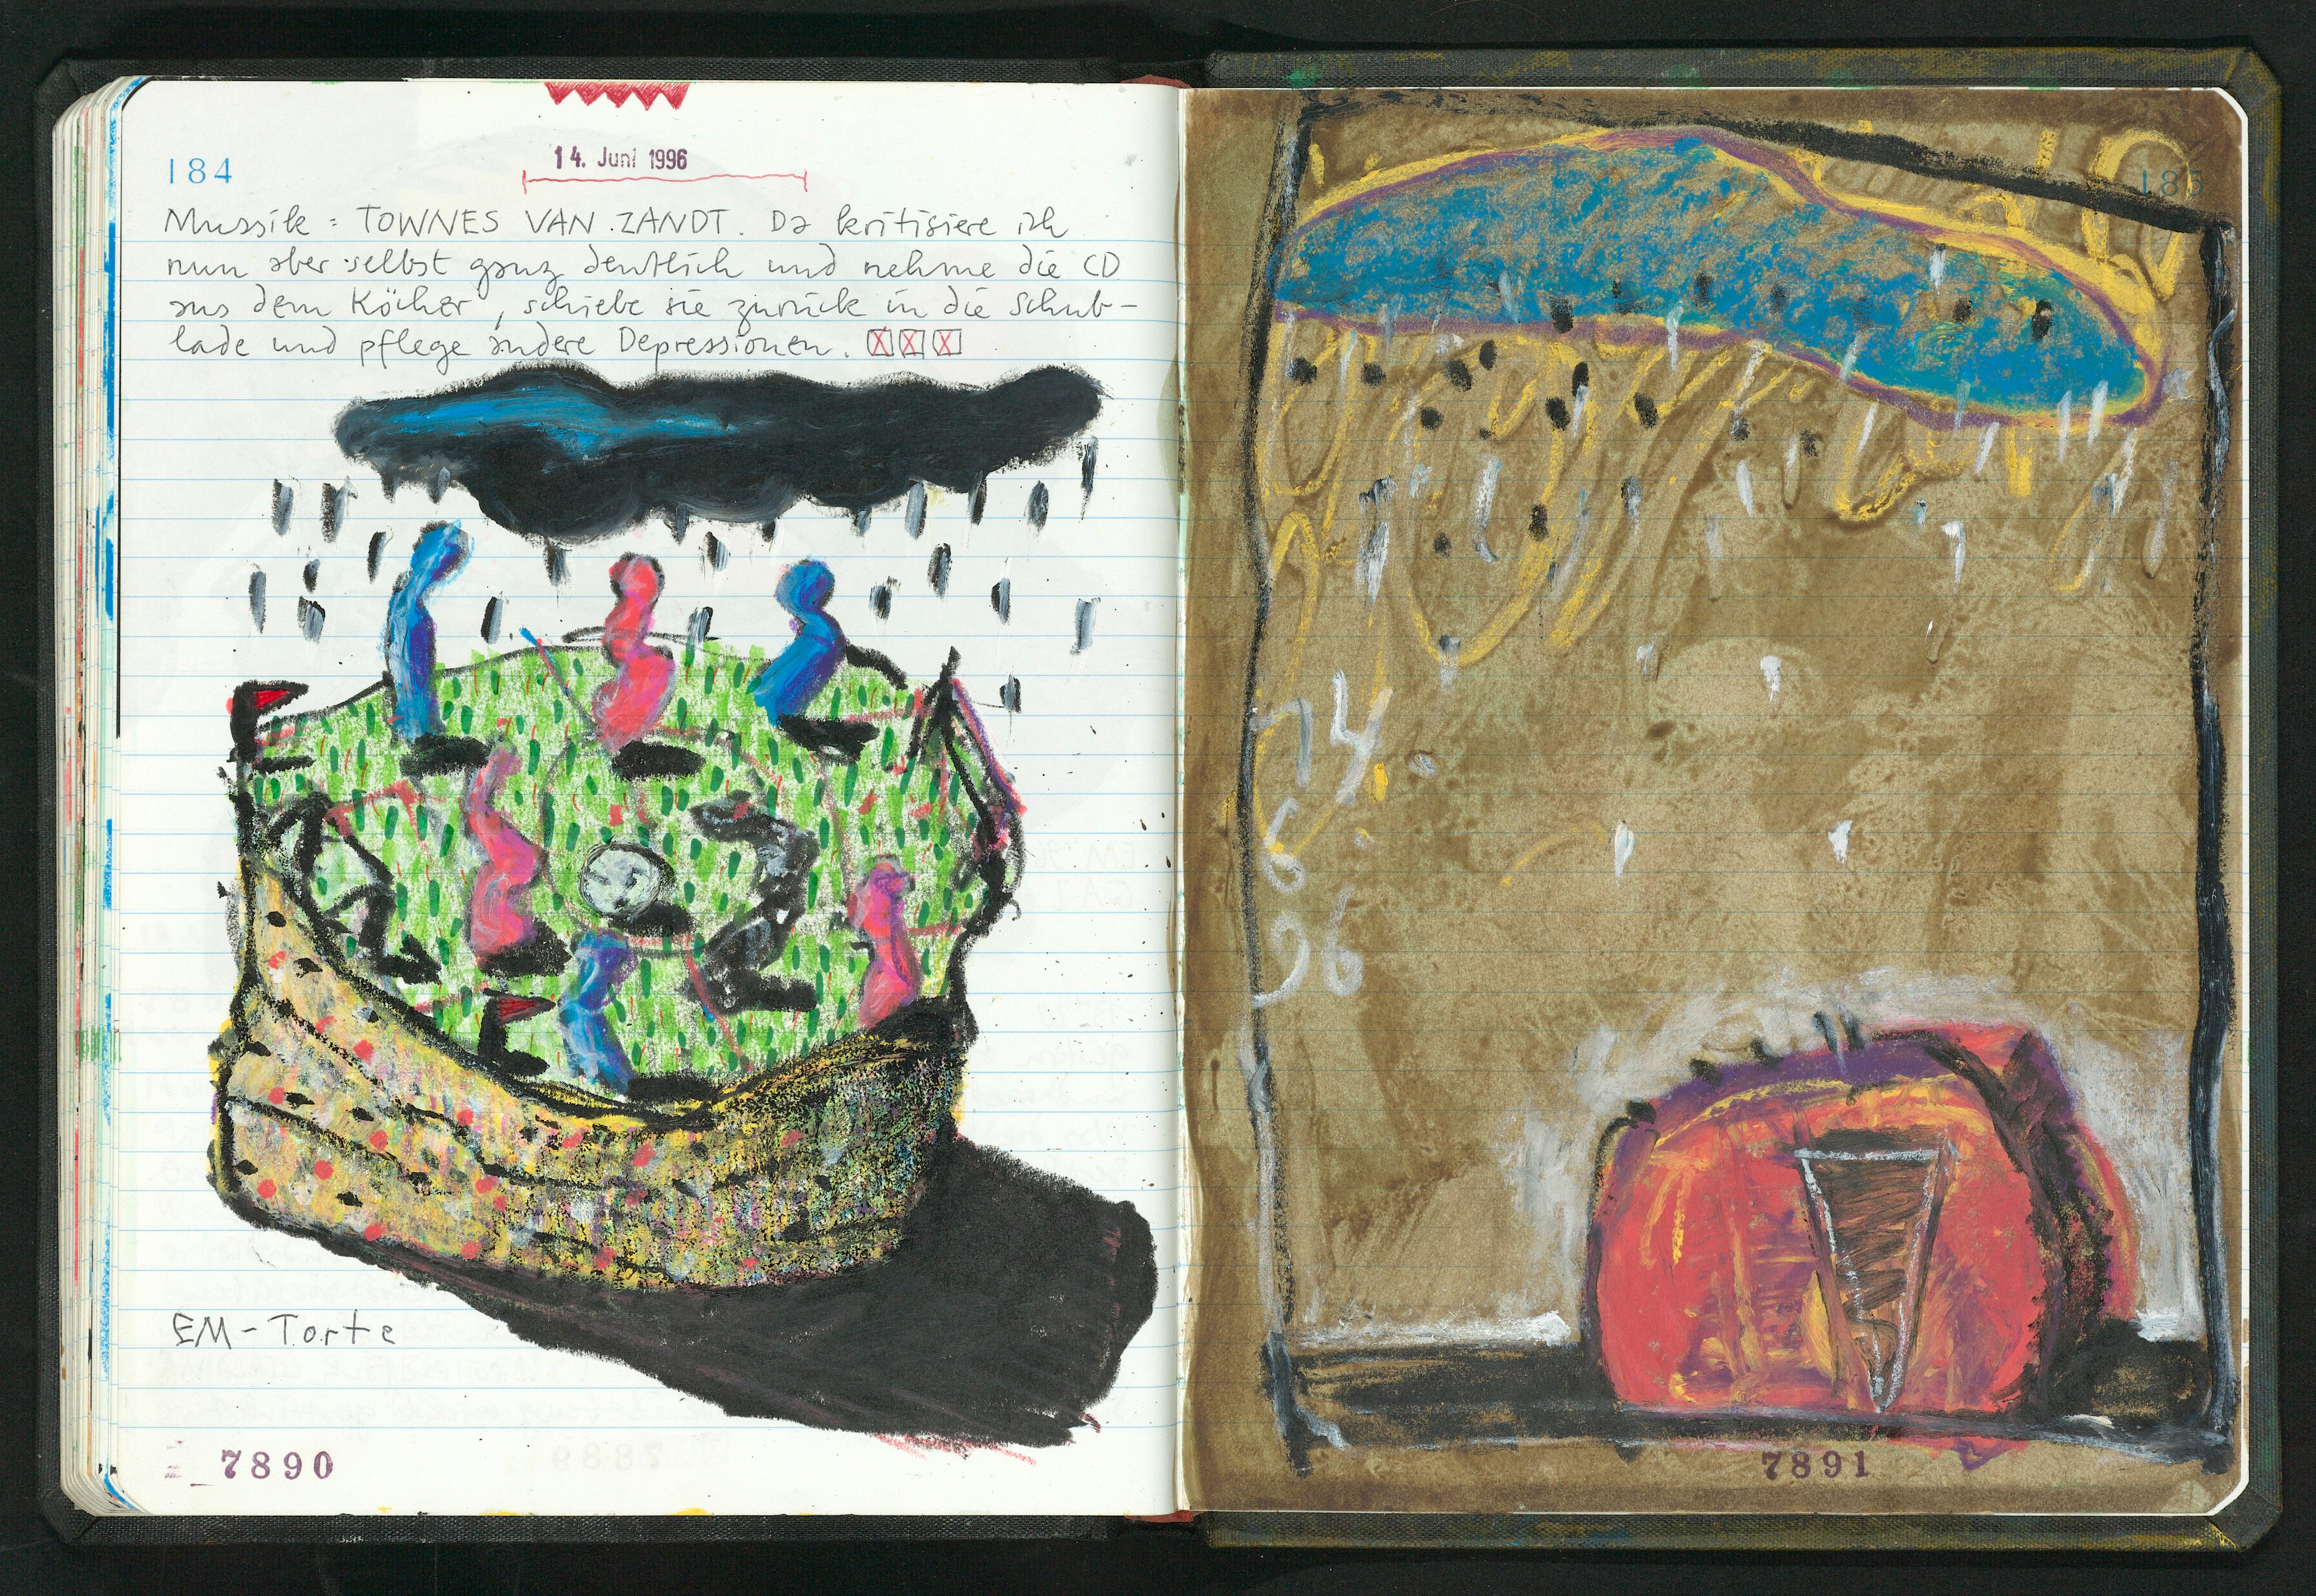 184
14. Juni 1996
Mussik: TOWNES VAN ZANDT. Da kritisiere ich
nun aber selbst ganz deutlich und nehme die CD
aus dem Köcher, schiebe sie zurück in die Schub-
lade und pflege andere Depressionen.
EM-Torte
7890
185
14
6
96
7891